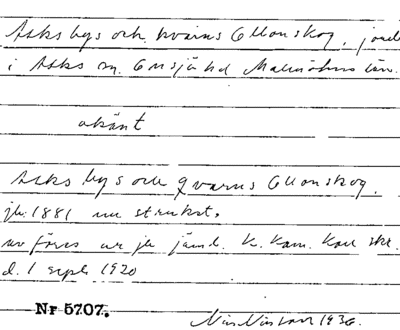 Asks bys och kvarns Ollonskog, jord
i Asks sn. Onsjö hd Malmöhus län.
okänt
Asks bys och qvarns Ollonskog.
jb. 1881 nu struket.
av föres ur jb jäml. K. Kam. Koll skr.
d. 1 sept 1920
Nr 5707.
1936.